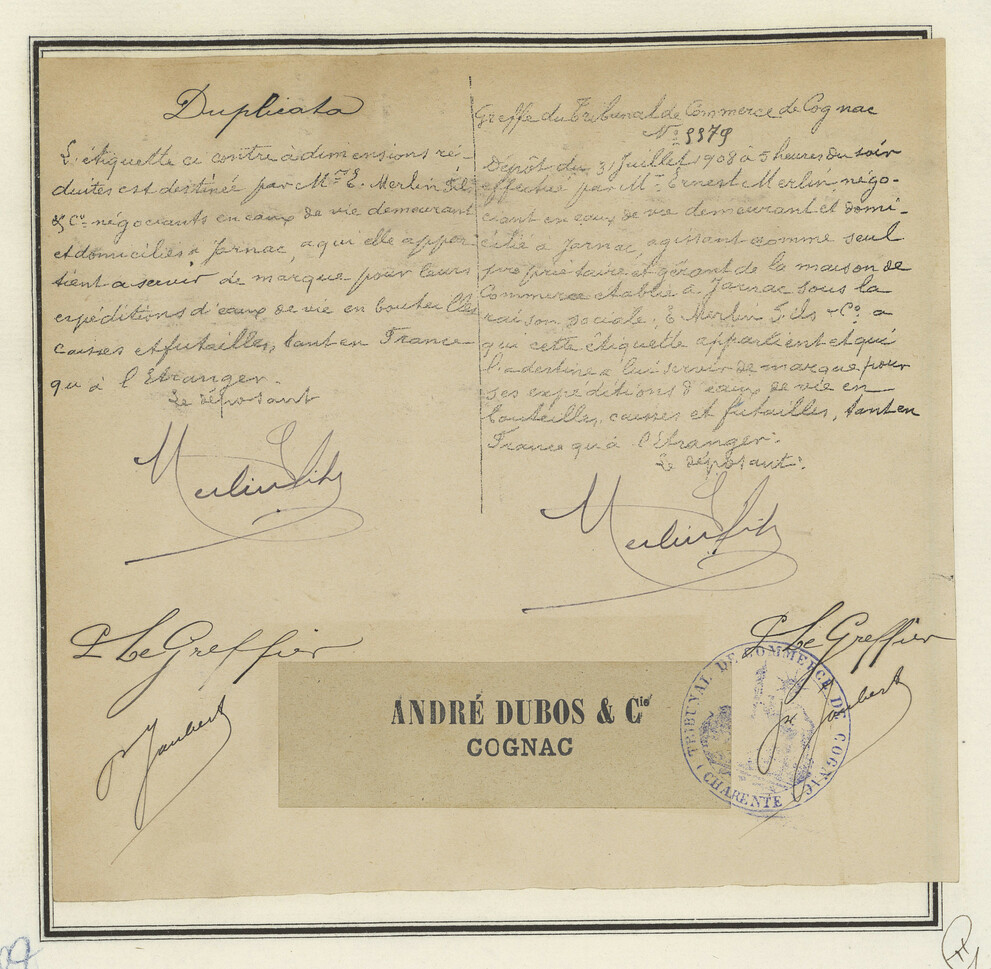 Duplicata
L'étiquette ci contre à dimensions ré-
duites est destinée par Mrs E. Merlin Fils
& Co négociants en eaux de vie demeurant
et domiciliés à Jarnac, a qui elle appar-
tient a servir de marque pour leurs
expéditions d'eaux de vie en bouteilles
caisses et futailles, tant en France
qu'à l'Etranger.
Le déposant
Merlin Fils
Greffe du Tribunal de Commerce de Cognac
No 9979
Dépôt du 31 Juillet 1908 à 5 heures du soir
effectué par Mr Ernest Merlin, négo-
ciant en eaux de vie demeurant et domi-
cilié à Jarnac, agissant comme seul
propriétaire et gérant de la maison de
Commerce etablie à Jarnac sous la
raison sociale, E. Merlin Fils & Co a
qui cette étiquette appartient et qui
l'a destine a lui servir de marque pour
ses expéditions d'eaux de vie en
bouteilles, caisses et futailles, tant en
France qu'à l'étranger.
Le déposant.
Merlin Fils
P Le Greffier
Jaubert
P Le Greffier
Jaubert
ANDRÉ DUBOS & Cie
COGNAC
TRIBUNAL DE COMMERCE DE COGNAC
(CHARENTE)